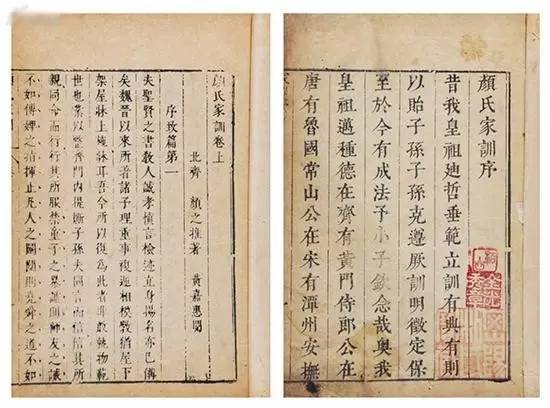 顏氏家訓序
昔我皇祖廸哲垂範立訓有典有則
以貽子孫子孫克遵厥訓明徵定保
至於今有成法予小子欽念哉奥我
皇祖邁種德在齊有黃門侍郎公在
唐有魯國常山公在宋有潭州安撫
顏氏家訓卷上
北齊 顏之推著 黃嘉惠閱
序致篇第一
夫聖賢之書教人誠孝慎言檢迹立身揚名亦已備
矣魏晉以來所著諸子理重事複遞相模斆猶屋下
架屋牀上施牀耳吾今所以復為此者非敢軌物範
世也業以整齊門內提撕子孫夫同言而信信其所
親同命而行行其所服禁童子之暴謔則師友之誡
不如傅婢之指揮止凡人之鬭鬩則堯舜之道不如